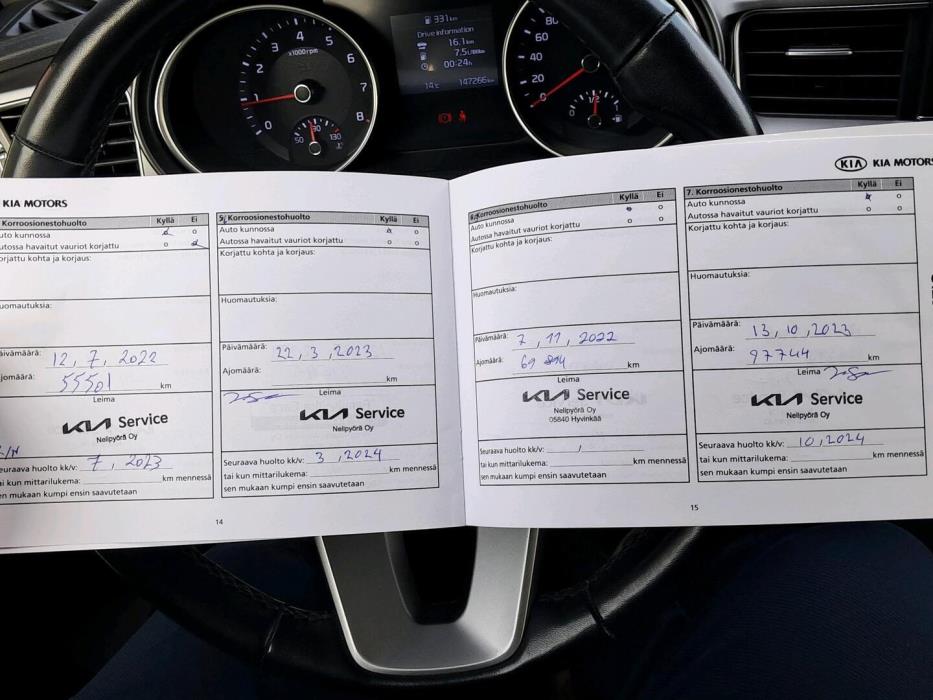 331 km
Drive information
16.1 km
7.5 L/100km
00:24 h
14°C 147266 km
x1000 rpm
0 1 2 3 4 5 6 7 8
50 90 130
0 20 40 60 80
0 1/2
KIA MOTORS
Korroosionestohuolto Kyllä Ei
uto kunnossa
utossa havaitut vauriot korjattu
orjattu kohta ja korjaus:
uomautuksia:
äivämäärä: 12, 7, 2022
jomäärä: 55501 km
Leima
KIA Service
Nelipyörä Oy
euraava huolto kk/v: 7, 2023
ai kun mittarilukema: km mennessä
en mukaan kumpi ensin saavutetaan
14
5. Korroosionestohuolto Kyllä Ei
Auto kunnossa
Autossa havaitut vauriot korjattu
Korjattu kohta ja korjaus:
Huomautuksia:
Päivämäärä: 22, 3, 2023
Ajomäärä: km
Leima
KIA Service
Nelipyörä Oy
Seuraava huolto kk/v: 3, 2024
tai kun mittarilukema: km mennessä
sen mukaan kumpi ensin saavutetaan
Korroosionestohuolto Kyllä Ei
Auto kunnossa
Autossa havaitut vauriot korjattu
Korjattu kohta ja korjaus:
Huomautuksia:
Päivämäärä: 7, 11, 2022
Ajomäärä: 69 km
Leima
KIA Service
Nelipyörä Oy
05840 Hyvinkää
Seuraava huolto kk/v: /
tai kun mittarilukema: km mennessä
sen mukaan kumpi ensin saavutetaan
15
KIA KIA MOTORS
7. Korroosionestohuolto Kyllä Ei
Auto kunnossa
Autossa havaitut vauriot korjattu
Korjattu kohta ja korjaus:
Huomautuksia:
Päivämäärä: 13, 10, 2023
Ajomäärä: 97744 km
Leima
KIA Service
Nelipyörä Oy
Seuraava huolto kk/v: 10, 2024
tai kun mittarilukema: km mennessä
sen mukaan kumpi ensin saavutetaan